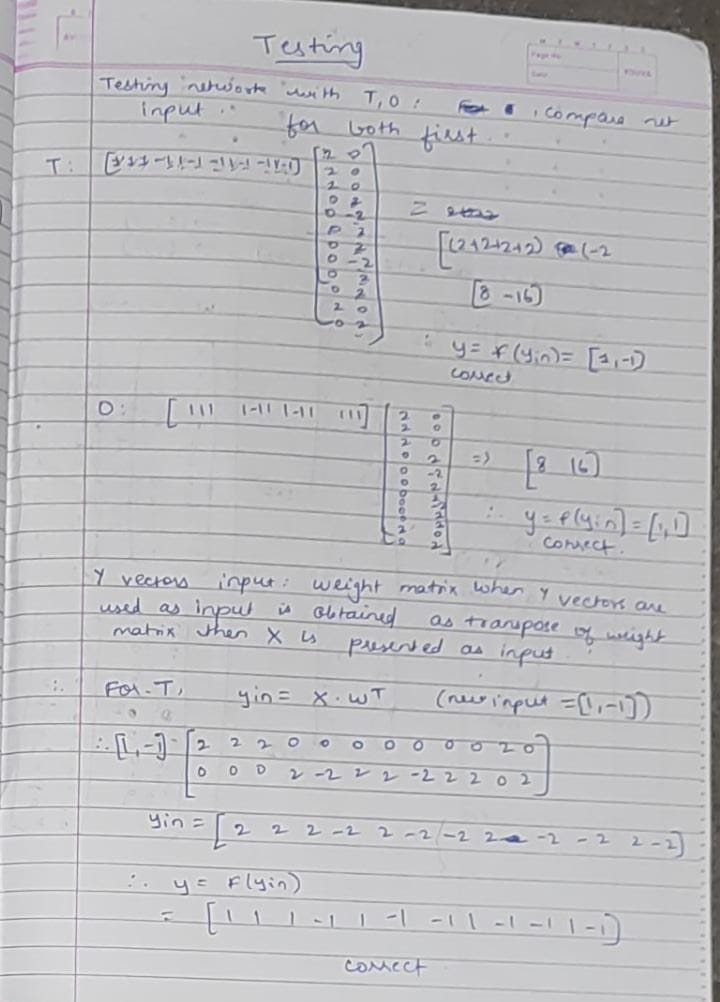 Testing
Page No.
Date
YOUVA
Testing network with T, O : , compare net
input for both first.
T: [1 1 1 -1 1 -1 -1 1 -1 -1 1 -1]
[2 0
2 0
2 0
0 2
0 -2
0 2
0 2
0 -2
0 2
0 2
2 0
0 2]
=
[(2+2+2+2) (-2
[8 -16]
∴ y = f(yin) = [1, -1]
correct
O: [111 1-11 1-11 111]
[2 0
2 0
2 0
0 2
0 -2
0 2
0 2
0 -2
0 2
0 2
2 0
0 2]
=> [8 16]
∴ y = f(yin] = [1, 1]
correct.
Y vectors input: weight matrix when Y vectors are
used as input is obtained as transpose of weight
matrix when X is presented as input.
∴ For T, yin = X . WT (new input = [1, -1])
∴ [1, -1] · [2 2 2 0 0 0 0 0 0 0 2 0
0 0 0 2 -2 2 2 -2 2 2 0 2]
yin = [2 2 2 -2 2 -2 -2 2 -2 -2 2 -2]
∴ y = F(yin)
= [1 1 1 -1 1 -1 -1 1 -1 -1 1 -1]
correct